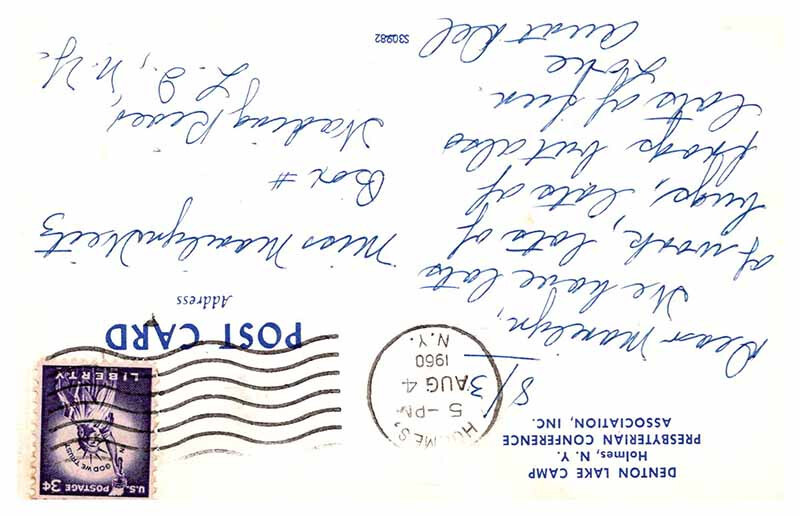 DENTON LAKE CAMP
Holmes, N. Y.
PRESBYTERIAN CONFERENCE
ASSOCIATION, INC.
8/3
Dear Marilyn,
We have lots
of work, lots of
bugs, lots of
frogs but also
lots of fun
Love
Aunt Del
S30982
HOLMES,
5 - PM
AUG 4
1960
N.Y.
U.S. POSTAGE 3¢
IN GOD WE TRUST
LIBERTY
POST CARD
Address
Miss Marilyn
Box #
Wading River,
L.I., N.Y.